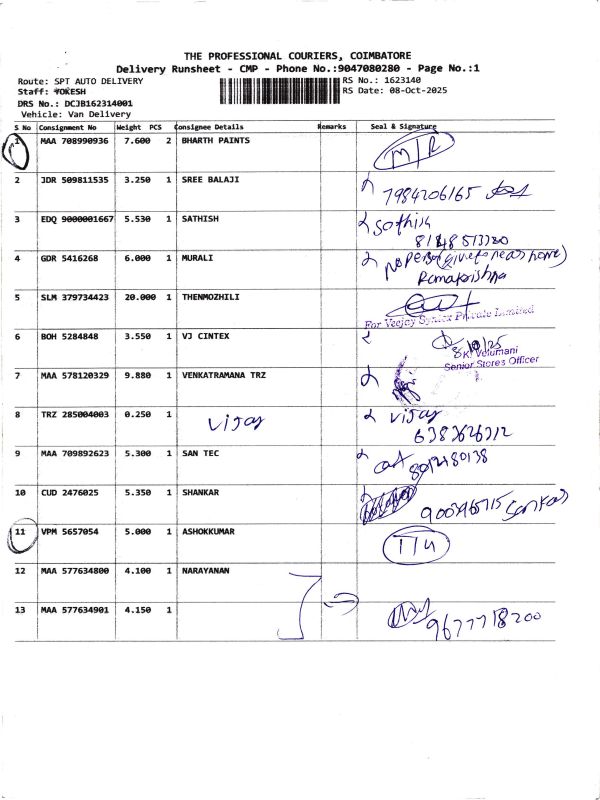 THE PROFESSIONAL COURIERS, COIMBATORE
Delivery Runsheet - CMP - Phone No.:9047080280 - Page No.:1
Route: SPT AUTO DELIVERY RS No.: 1623140
Staff: YOKESH RS Date: 08-Oct-2025
DRS No.: DCJB162314001
Vehicle: Van Delivery
S No Consignment No Weight PCS Consignee Details Remarks Seal & Signature
1 MAA 708990936 7.600 2 BHARTH PAINTS M/R
2 JDR 509811535 3.250 1 SREE BALAJI 7984206165
3 EDQ 9000001667 5.530 1 SATHISH Sathish
8148513320
4 GDR 5416268 6.000 1 MURALI no person (give to near home)
Ramakrishna
5 SLM 379734423 20.000 1 THENMOZHILI
For Veejay Syntex Private Limited
6 BOH 5284848 3.550 1 VJ CINTEX 8/10/25
S.K. Velumani
Senior Stores Officer
7 MAA 578120329 9.880 1 VENKATRAMANA TRZ
8 TRZ 285004003 0.250 1 Vijay Vijay
6383626312
9 MAA 709892623 5.300 1 SAN TEC
10 CUD 2476025 5.350 1 SHANKAR
11 VPM 5657054 5.000 1 ASHOKKUMAR
12 MAA 577634800 4.100 1 NARAYANAN
13 MAA 577634901 4.150 1 9677718200